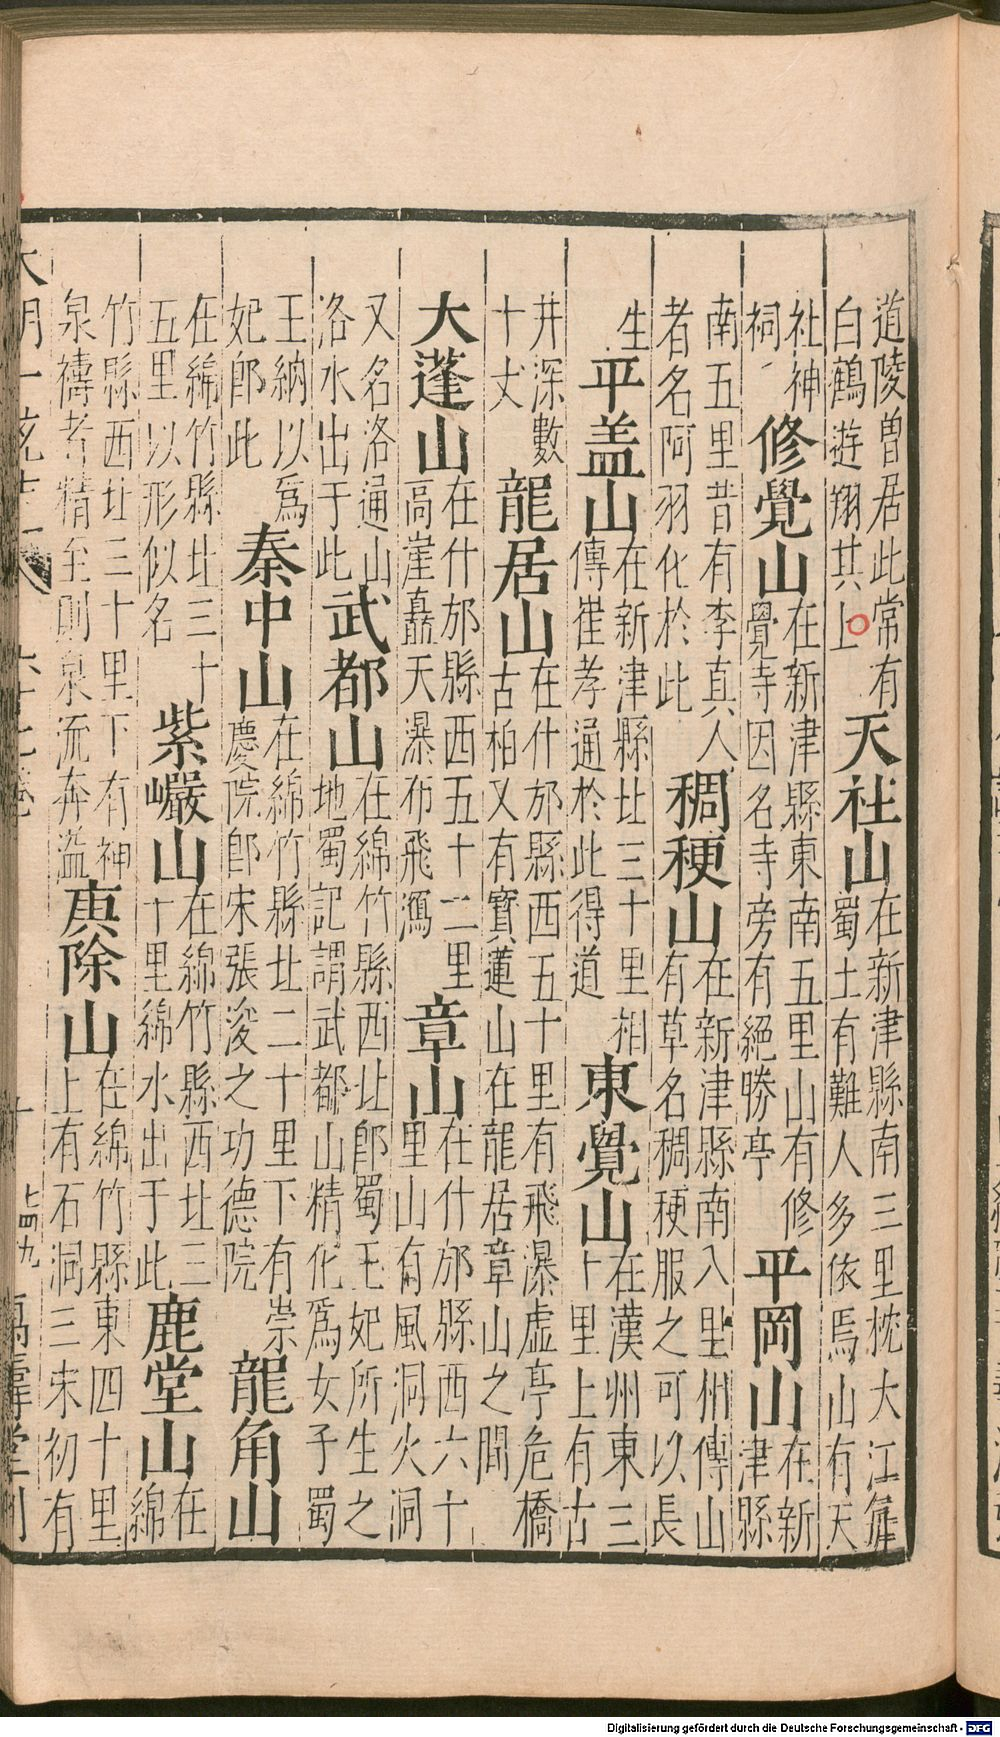 道陵曽居此常有
白鶴遊翔其上
天社山
在新津縣南三里枕大江
蜀土有難人多依焉山有天
社神
祠
修覺山
在新津縣東南五里山有修
覺寺因名寺旁有絕勝亭
平岡山
在新
津縣
南五里昔有李真人
者名阿羽化於此
稠稉山
在新津縣南入州傳山
有草名稠稉服之可以長
生
平盖山
在新津縣北三十里相
傳崔孝通於此得道
東覺山
在漢州東三
十里上有古
井深數
十丈
龍居山
在什邡縣西五十里有飛瀑虛亭危橋
古柏又有寳蓮山在龍居章山之間
大蓬山
在什邡縣西五十二里
高崖矗天瀑布飛瀉
章山
在什邡縣西六十
里山有風洞火洞
又名洛通山
洛水出于此
武都山
在綿竹縣西北郎蜀王妃所生之
地蜀記謂武都山精化爲女子蜀
王納以爲
妃郎此
秦中山
在綿竹縣北二十里下有崇
慶院郎宋張浚之功德院
龍角山
在綿竹縣北三十
五里以形似名
紫巖山
在綿竹縣西北三
十里綿水出于此
鹿堂山
在
綿
竹縣西北三十里下有神
泉禱者精至則泉流奔溢
庚除山
在綿竹縣東四十里
上有石洞三宋初有
大明一統志
萬壽堂刊
Digitalisierung gefördert durch die Deutsche Forschungsgemeinschaft - DFG